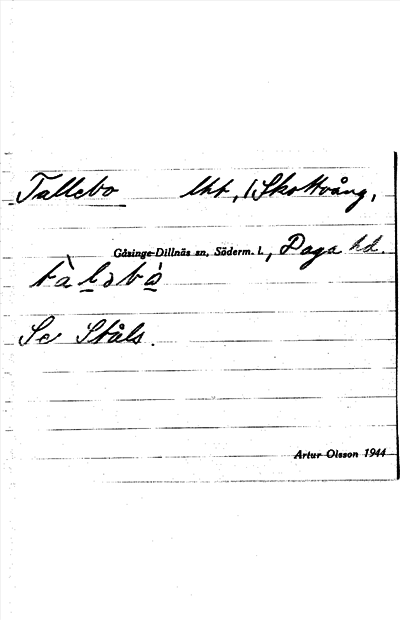 Tallebo lht, / Skottvång,
Gåsinge-Dillnäs sn, Söderm. l., Daga hd.
tàləbò
Se Ståls.
Artur Olsson 1944